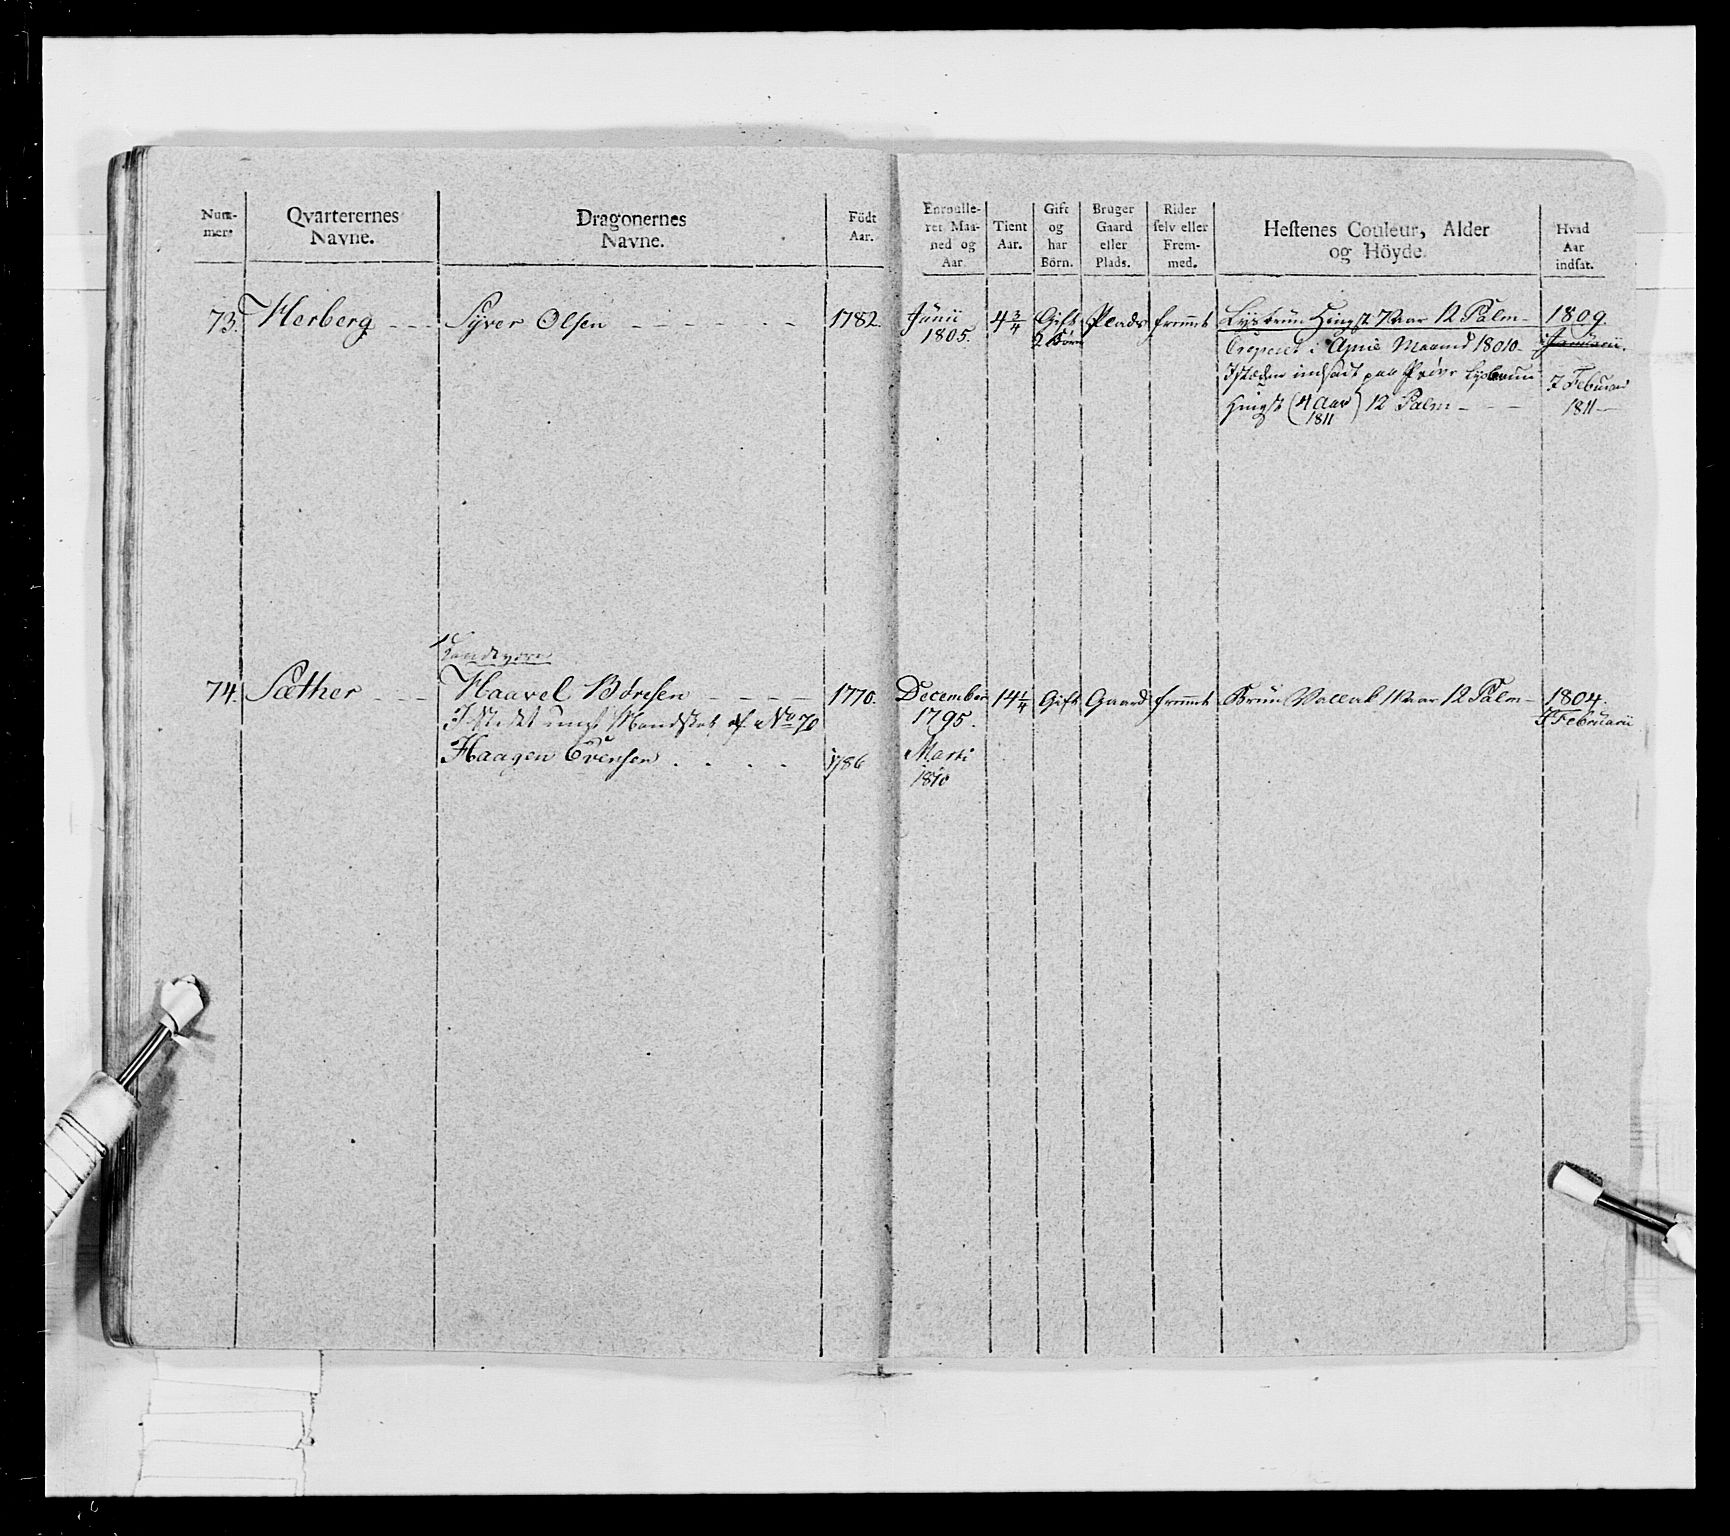 Num-
mers
Qvarterernes
Navne.
Dragonernes
Navne.
Födt
Aar.
Enroulle-
ret Maa-
ned og
Aar
Tient
Aar.
Gift
og
har
Börn.
Bruger
Gaard
eller
Plads.
Rider
selv eller
Frem-
med.
Hestenes Couleur, Alder
og Höyde.
Hvad
Aar
indsat.
73. Herberg Syver Olsen 1782. Junii 4 3/4 Gift Plads fremmt Lysbrun Hingst 7 Aar 12 Palm 1809.
1805. 2 Börn
i April Maaned 1810 Januarii.
Istæden indsadt paa Pröve Lysbrun 7 Februar
Hingst (4 Aar) 12 Palm 1811
1811
74. Sæther Haavel Böresen 1770. December 14 1/4 Gift Gaard fremmt Brun Vallak 11 Aar 12 Palm 1804.
Istedet Mandskab af No 70 1795. Februarii
Haagen Evensen 1786 Marti
1810